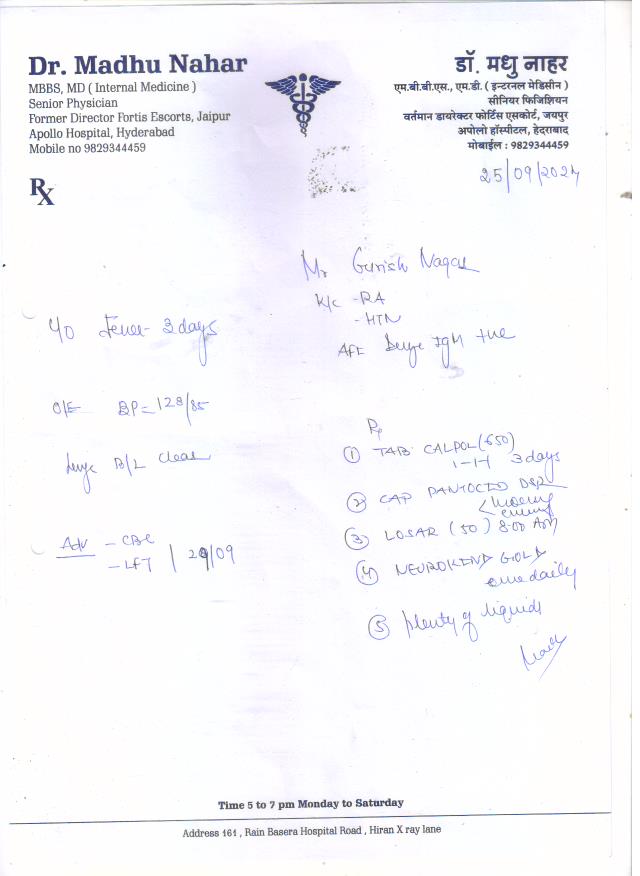 Dr. Madhu Nahar
MBBS, MD ( Internal Medicine )
Senior Physician
Former Director Fortis Escorts, Jaipur
Apollo Hospital, Hyderabad
Mobile no 9829344459
डॉ. मधु नाहर
एम.बी.बी.एस., एम.डी. ( इन्टरनल मेडिसीन )
सीनियर फिजिशियन
वर्तमान डायरेक्टर फोर्टिस एसकोर्ट, जयपुर
अपोलो हॉस्पीटल, हेदराबाद
मोबाईल : 9829344459
25/09/2024
Rx
Mr Girish Nagar
K/c - RA
- HTN
Dengue IgM +ve
C/O Fever - 3 days
O/E BP = 128/85
B/L Clear
Adv - CBC
- LFT | 29/09
Rx
① TAB CALPOL (650)
1-1-1 3 days
② CAP PANTOCID DSR
< morning
evening
③ LOSAR (50) 8:00 AM
④ NEUROKIND GOLD
once daily
⑤ plenty of liquids
Time 5 to 7 pm Monday to Saturday
Address 161 , Rain Basera Hospital Road , Hiran X ray lane